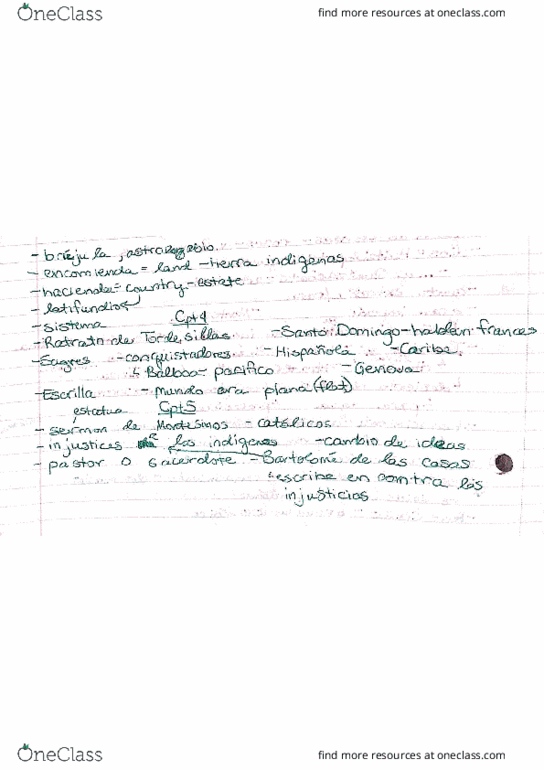 OneClass
find more resources at oneclass.com
- brújula, astrolabio.
- encomienda = land - tierra indígenas
- hacienda = country - estate
- latifundios
- sistema Cpt4
- Ratrato de Tordesillas - Santo Domingo - hablan frances
- Sagres - conquistadores - Hispañola - Caribe
↳ Balboa - pacífico - Genova
- Escrilla - mundo era plana (flat)
estatua Cpt5
- sermon de Montesinos - católicos
- injustices los indígenas - cambio de ideas
- pastor o sacerdote - Bartolomé de las Casas
↳ escribe en contra las
injusticias
OneClass
find more resources at oneclass.com